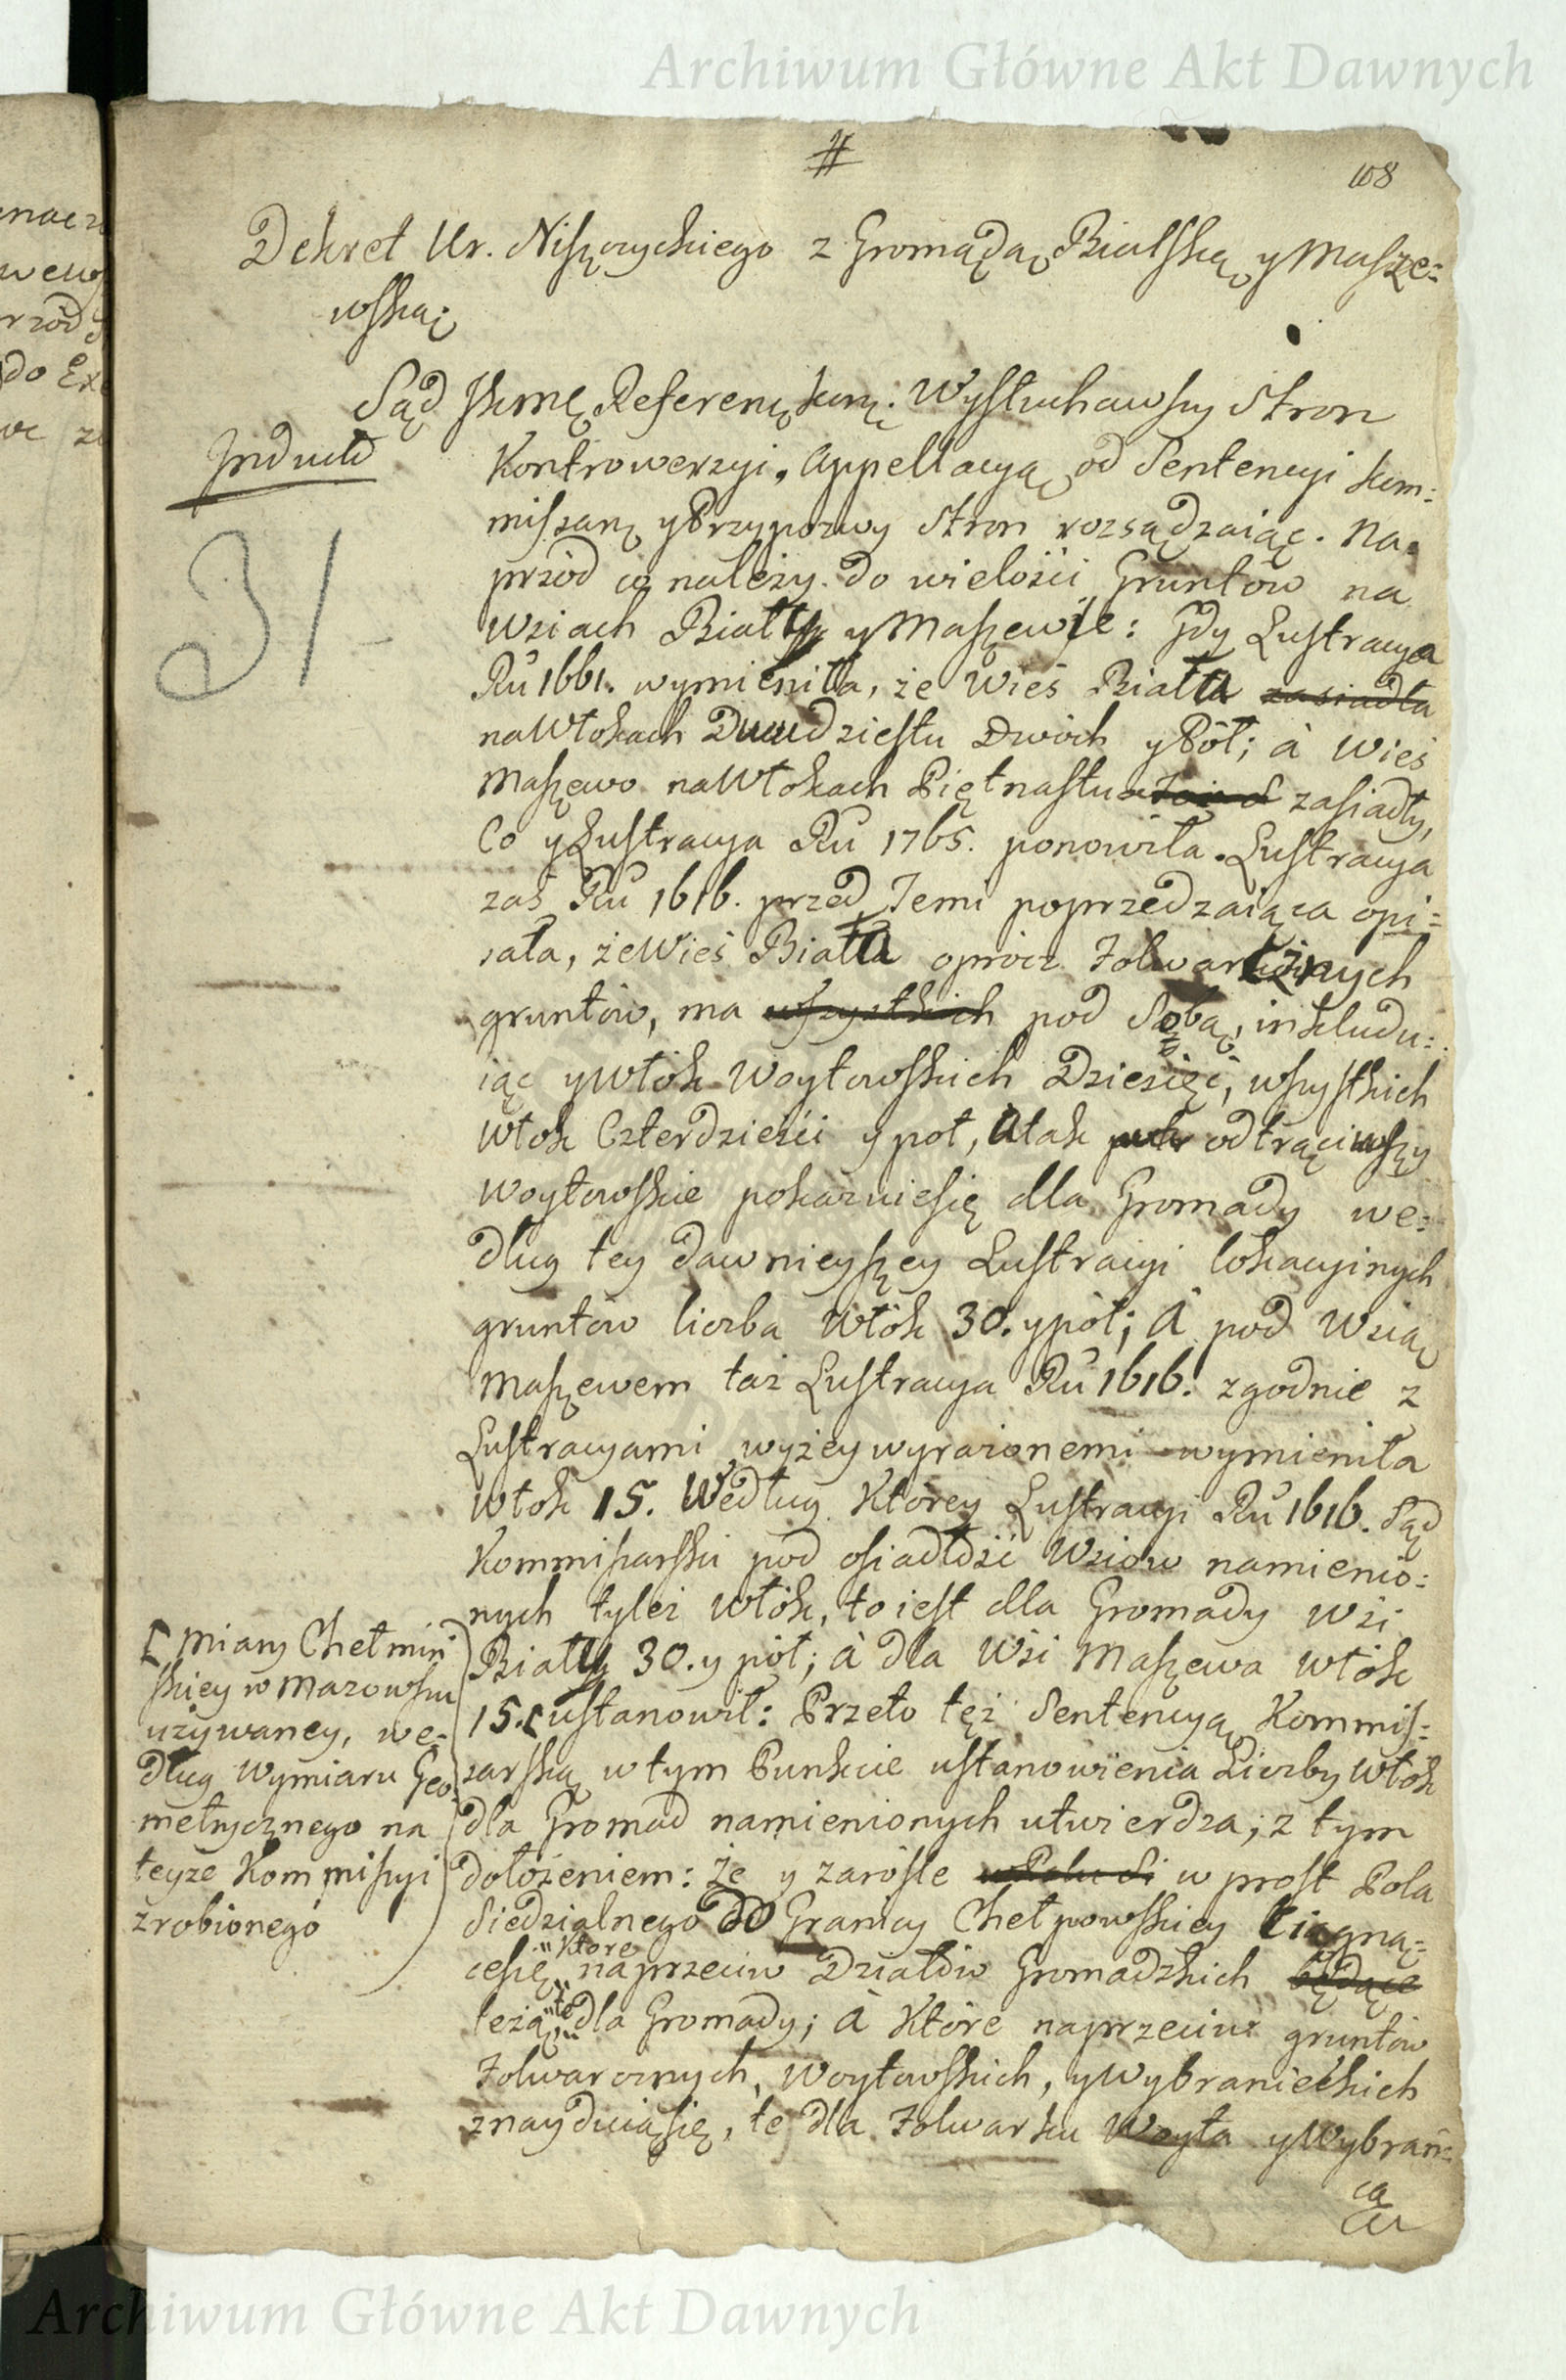 Archiwum Główne Akt Dawnych
#
108
Dekret Ur. Niszczyckiego z Gromadą Bialską y Masze=
wską
Sąd JKmę Referenę korę. Wysłuchawszy Stron
Indukt
Kontrowerzyi, Appellacyą od Sentencyi kom=
missarę y Przypozwy Stron rozsądzaiąc. Na
31
przód co należy do wielości Gruntów na
Wsiach Biały y Maszewie: Gdy Lustracya
Ru 1661. wymieniła, że Wieś Biała zasiadła
na Włokach Dwudziestu Dwóch y Pół; à Wieś
Maszewo na Włokach Piętnastu zasiadły,
Co y Lustracya Ru 1765. ponowiła. Lustracya
zaś Ru 1616. przed Temi poprzedzaiąca opi=
sała, że Wieś Biała oprócz Folwarcznych
gruntów, ma wszystkich pod Sobą, inkludu=
iąc y Włók Woytowskich Dziesięć, wszystkich
Włok Czterdzieści y poł, A tak odtrąciwszy
Woytowskie pokazuie się dla Gromady we=
dług tey dawnieyszey Lustracyi lokacyinych
gruntów liczba Włók 30. y pół; A pod Wsią
Maszewem taż Lustracya Ru 1616. zgodnie z
Lustracyami wyżey wyrażonemi wymieniła
Włok 15. Według Którey Lustracyi Ru 1616. Sąd
Kommissarski pod osiadłość Wsiow namienio=
nych tyleż Włók, to iest dla Gromady Wsi
Biały 30. y pół; à dla Wsi Maszewa Włók
15. [ustanowił: Przeto tęż Sentencyą Kommis=
sarską w tym Punkcie ustanowienia Liczby Włók
dla Gromad namienionych utwierdza; z tym
dołożeniem: że y zarośle w prost Pola
Siedzialnego do Granicy Chełpowskiey ciągną=
cesię, które naprzeciw Działów Gromadzkich będące
leżą, te dla Gromady; A Które naprzeciw gruntów
Folwarcznych, Woytowskich, y Wybranieckich
znayduiąsię, te dla Folwarku Woyta y Wybrań=
ca
[ Miary Chełmiń
skiey w Mazowszu
używaney, we=
dług Wymiaru Geo=
metrycznego na
teyże Kommissyi
zrobionego
Archiwum Główne Akt Dawnych